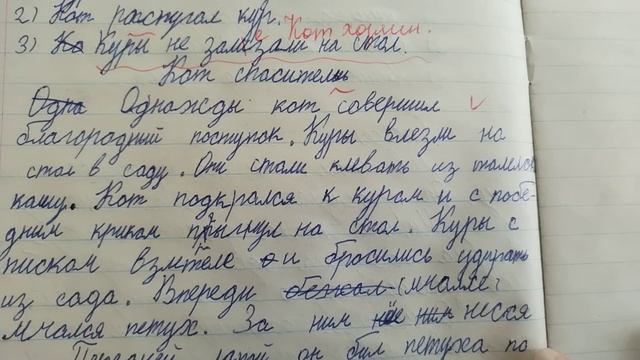 2) Кот распугал кур.
3) Куры не залезали на стол. Кот хозяин.
Кот спаситель
Одна Однажды кот совершил
благородный поступок. Куры влезли на
стол в саду. Они стали клевать из тарелок
кашу. Кот подкрался к курам и с побе-
дним криком прыгнул на стол. Куры с
писком взлетеле и бросились удирать
из сада. Впереди бежал мчался
мчался петух. За ним нёсся
он бил петуха по